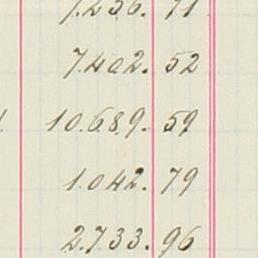 1.236. 71
7.402. 52
10.689. 59
1.042. 79
2.733. 96